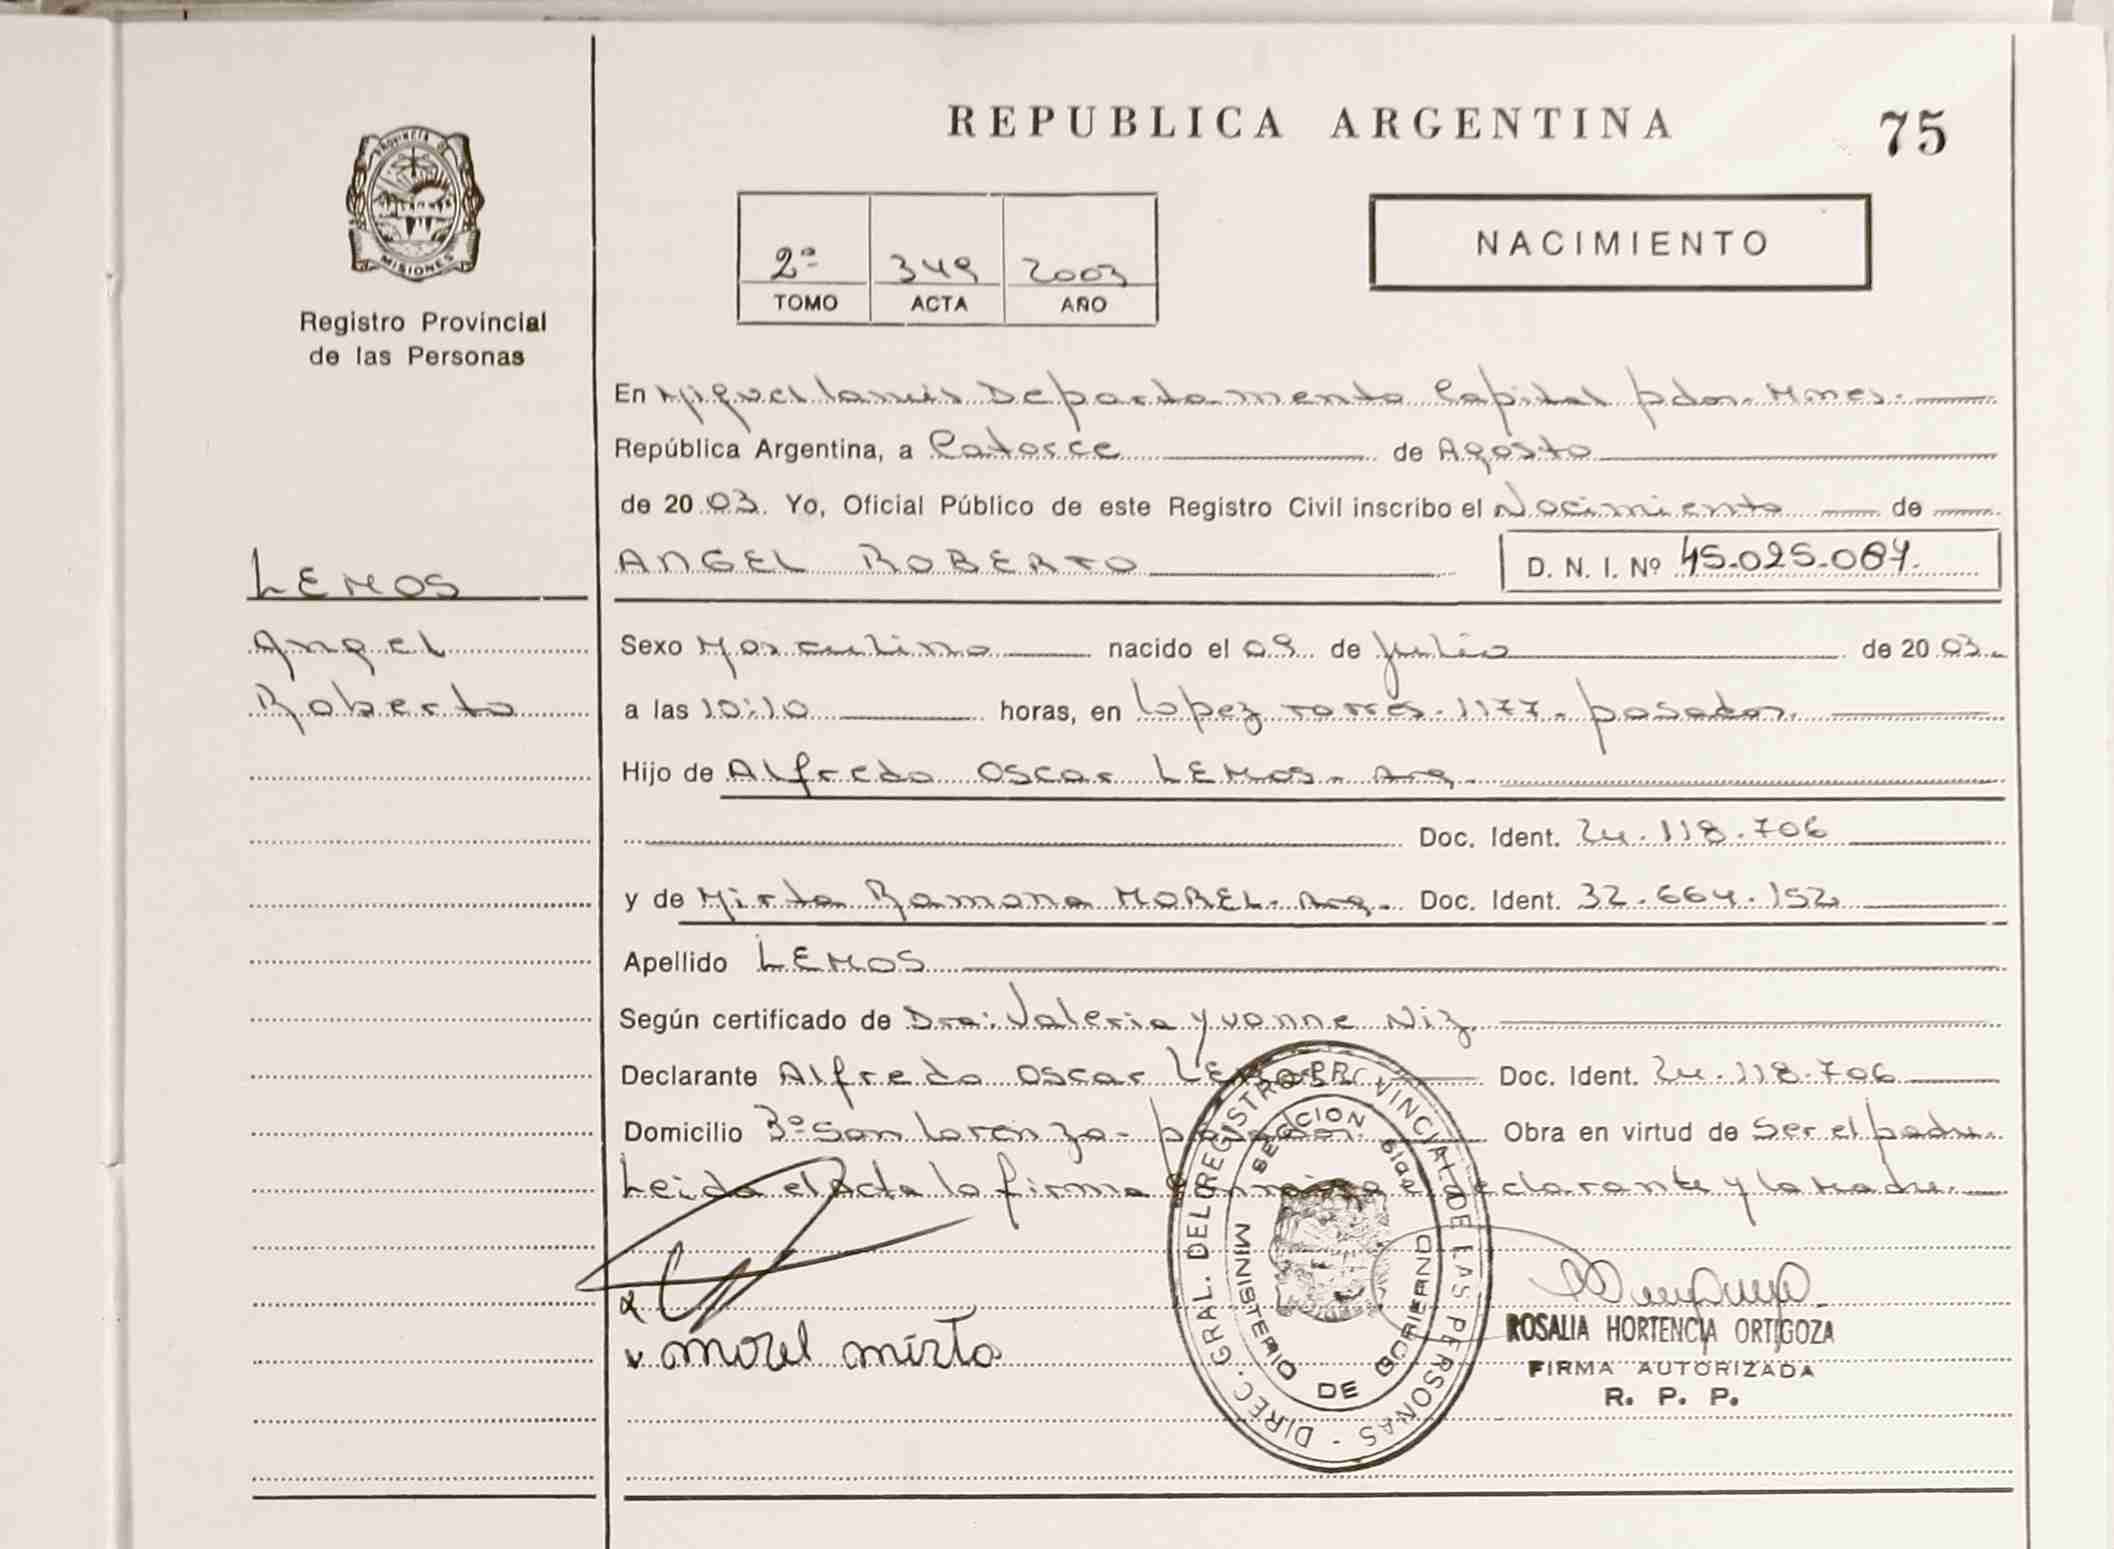 REPUBLICA ARGENTINA
75
PROVINCIA DE
MISIONES
Registro Provincial
de las Personas
2º 349 2003
TOMO ACTA AÑO
NACIMIENTO
En Miguel Lanus Departamento Capital pdas. Mnes.
República Argentina, a Catorce de Agosto
de 2003. Yo, Oficial Público de este Registro Civil inscribo el Nacimiento de
LEMOS
Angel
Roberto
ANGEL ROBERTO D. N. I. Nº 45.025.067.
Sexo Masculino nacido el 09 de Julio de 2003
a las 10:10 horas, en Lopez torres. 1177. posadas.
Hijo de Alfredo Oscar LEMOS. Arg.
Doc. Ident. 24.118.706
y de Mirta Ramona MOREL. Arg. Doc. Ident. 32.664.152
Apellido LEMOS
Según certificado de Dra: Valeria Yvonne Niz.
Declarante Alfredo Oscar LEMOS Doc. Ident. 24.118.706
Domicilio Bº San Lorenzo - posadas. Obra en virtud de Ser el padre.
Leida el Acta la firma conmigo el declarante y la Madre.
morel mirta
DIREC. GRAL. DEL REGISTRO PROVINCIAL DE LAS PERSONAS
MINISTERIO DE GOBIERNO
SECCION
ROSALIA HORTENCIA ORTIGOZA
FIRMA AUTORIZADA
R. P. P.